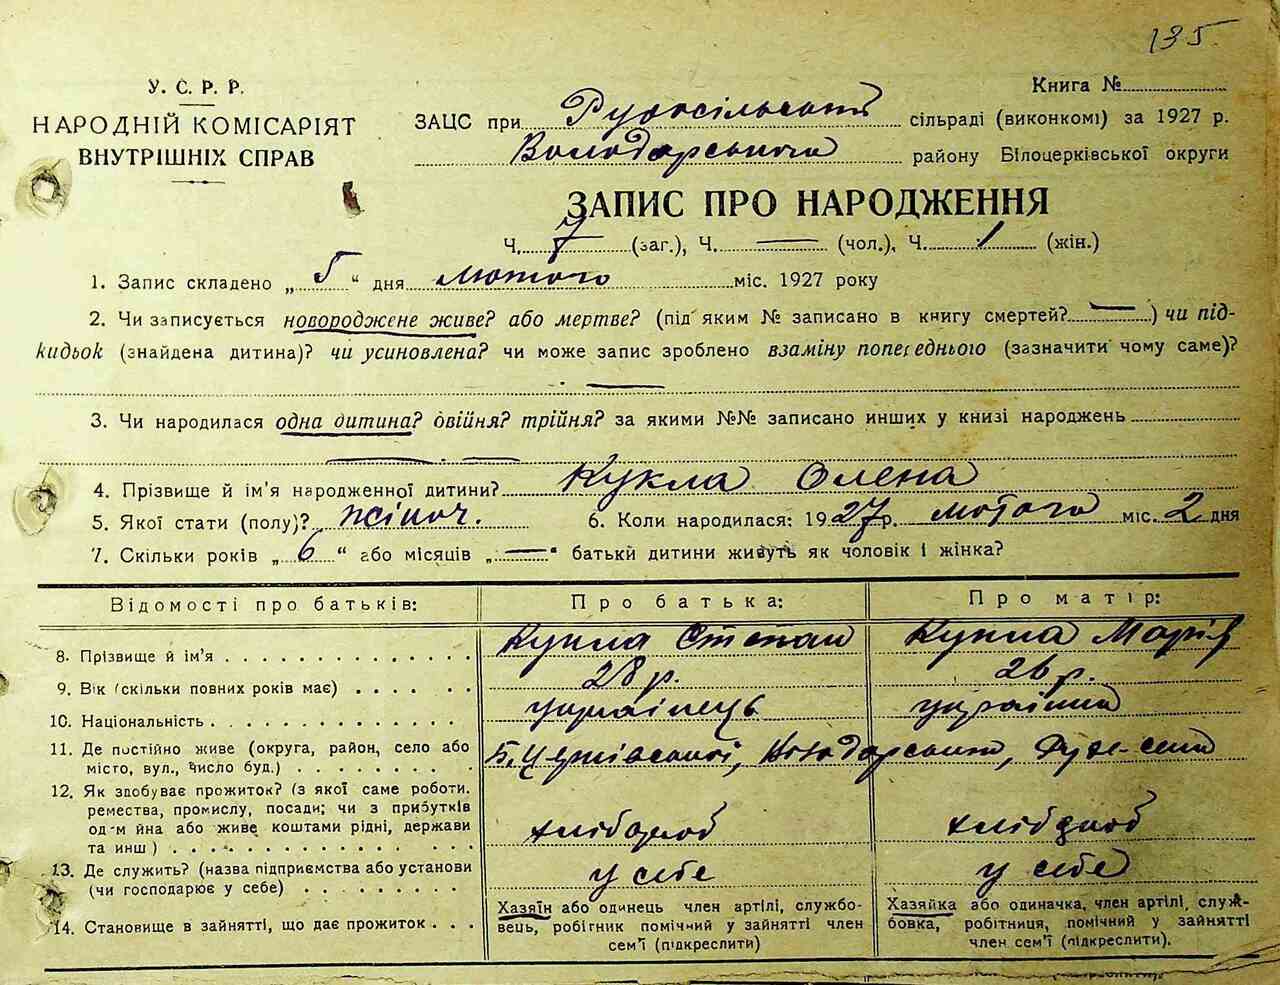 135
У. С. Р. Р.
НАРОДНІЙ КОМІСАРІЯТ
ВНУТРІШНІХ СПРАВ
Книга №
ЗАЦС при Рудосільській сільраді (виконкомі) за 1927 р.
Володарського району Білоцерківської округи
ЗАПИС ПРО НАРОДЖЕННЯ
Ч. 7 (заг.), Ч. — (чол.), Ч. 1 (жін.)
1. Запис складено „ 5 “ дня лютого міс. 1927 року
2. Чи записується новороджене живе? або мертве? (під яким № записано в книгу смертей? — ) чи під-
кидьок (знайдена дитина)? чи усиновлена? чи може запис зроблено взаміну попереднього (зазначити чому саме)?
—
3. Чи народилася одна дитина? двійня? трійня? за якими №№ записано инших у книзі народжень
4. Прізвище й ім'я народженної дитини? Кукла Олена
5. Якої стати (полу)? жіноч. 6. Коли народилася: 1927 р. лютого міс. 2 дня
7. Скільки років „ 6 “ або місяців „ — “ батьки дитини живуть як чоловік і жінка?
Відомості про батьків: Про батька: Про матір:
8. Прізвище й ім'я Кукла Степан Кукла Марія
9. Вік (скільки повних років має) 28 р. 26 р.
10. Національність українець українка
11. Де постійно живе (округа, район, село або
місто, вул., число буд.) Б. Церківської, Володарського, Руде-село
12. Як здобуває прожиток? (з якої саме роботи.
ремества, промислу, посади; чи з прибутків
од-м йна або живе коштами рідні, держави
та инш) хлібороб хлібороб
13. Де служить? (назва підприємства або установи
(чи господарює у себе) у себе у себе
14. Становище в зайнятті, що дає прожиток
Хазяїн або одинець член артілі, службо-
вець, робігник помічний у зайнятті член
сем'ї (підкреслити)
Хазяйка або одиначка, член артілі, служ-
бовка, робітниця, помічний у зайнятті
член сем'ї (підкреслити).